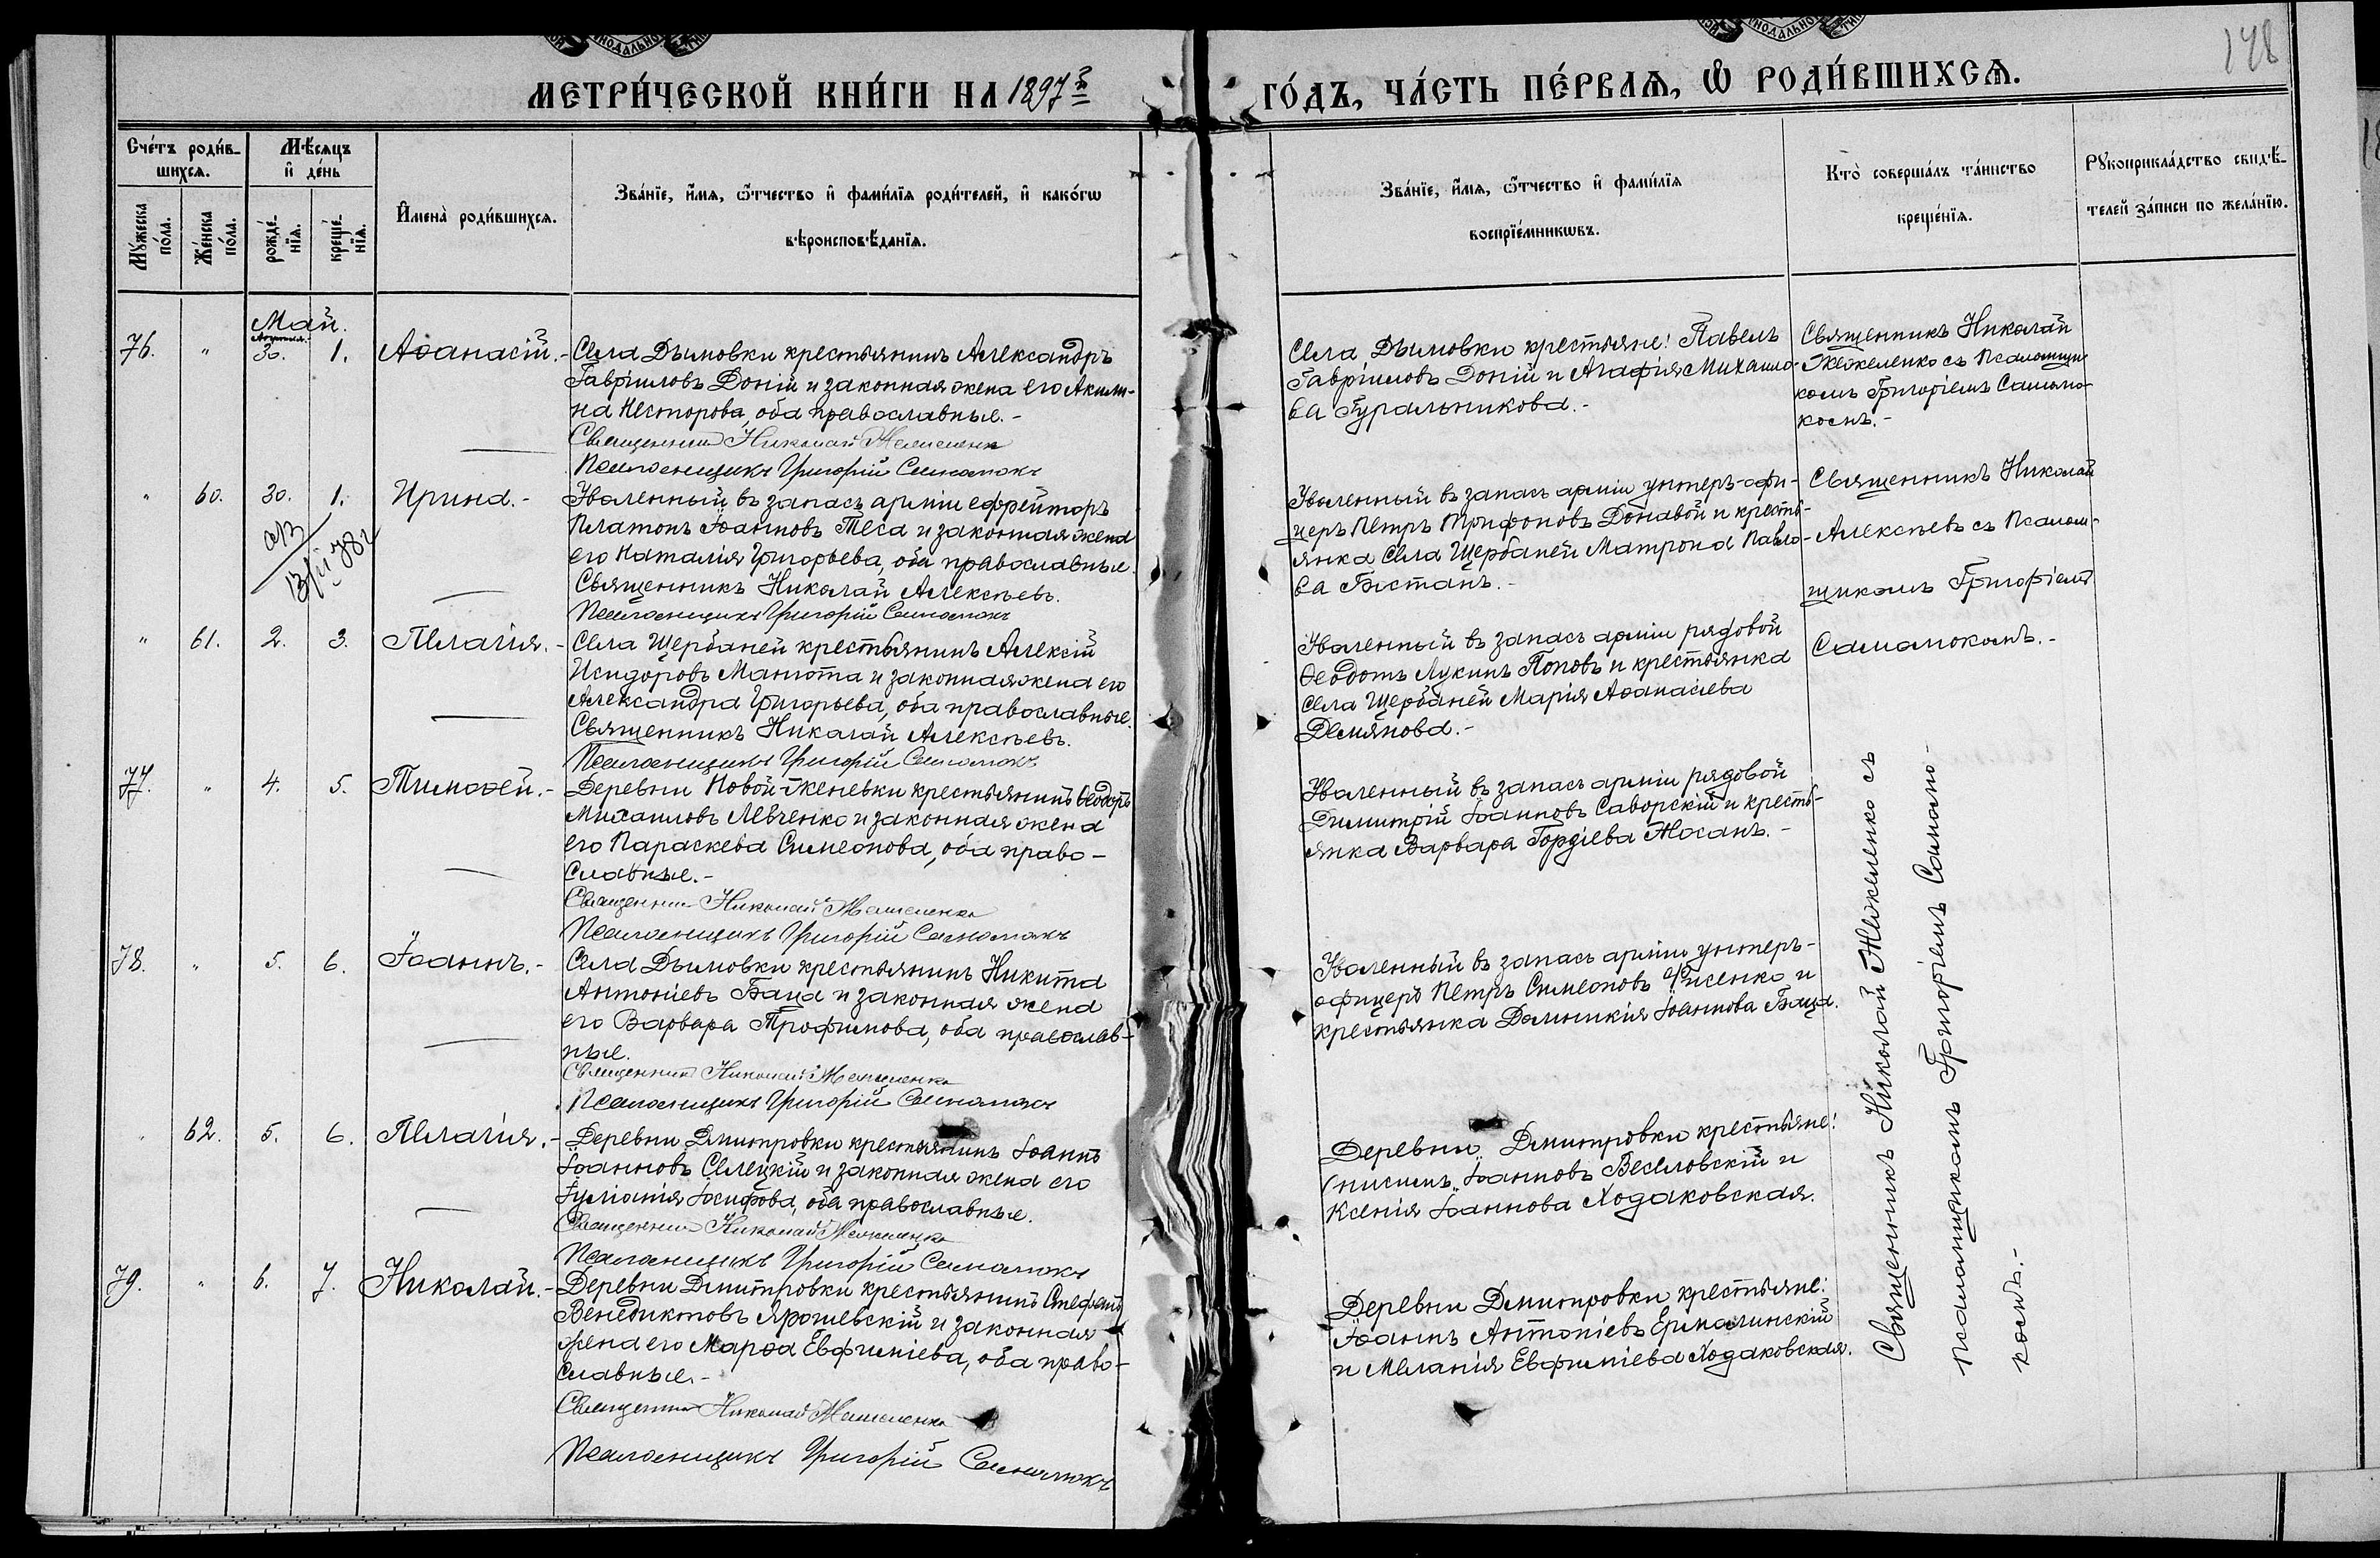 148
МЕТРИ́ЧЕСКОЙ КНИ́ГИ НА 1897 г. ГО́ДЪ, ЧА́СТЬ ПЕ́РВАѦ, Ѡ РОДИ́ВШИХСѦ.
Сче́тъ роди́в-
шихсѧ.
Мѣ́сѧцъ
и де́нь
Мꙋ́жеска
по́ла.
Же́нска
по́ла.
рожде́-
нїѧ.
креще́-
нїѧ.
Имена̀ роди́вшихсѧ.
Зва́нїе, и́мѧ, ѻ́тчество и фами́лїѧ роди́телей, и како́гѡ
вѣроисповѣ́данїѧ.
Зва́нїе, и́мѧ, ѻ́тчество и фами́лїѧ
воспрїе́мникѡвъ.
Кто̀ соверша́лъ та́инство
креще́нїѧ.
Рꙋкоприкла́дство свидѣ́-
телей за́писи по жела́нїю.
Май.
76. " Апреля 30. 1. Аѳанасій.- Села Дымовки крестьянинъ Александръ
Гавріиловъ Доній и законная жена его Акили-
на Несторова, оба православные.-
Священникъ Николай
Псаломщикъ Григорій Самолюкъ
Села Дымовки крестьяне: Павелъ
Гавріиловъ Доній и Агафія Михаило-
ва Гуральникова.-
Священникъ Николай
Жежеленко съ псаломщи-
комъ Григоріемъ Самолю-
комъ.-
" 60. 30. 1. Ирина.- Уволенный въ запасъ арміи ефрейторъ
Платонъ Іоанновъ Теса и законная жена
его Наталія Григорьева, оба православные.
Священникъ Николай Алексѣевъ.
Псаломщикъ Григорій Самолюкъ
Уволенный въ запасъ арміи унтеръ-офи-
церъ Петръ Трифоновъ Донавой и кресть-
янка села Щербаней Матрона Павло-
ва Бистанъ.-
Священникъ Николай
Алексѣевъ съ псалом-
щикомъ Григоріемъ
Самолюкомъ.-
" 61. 2. 3. Пелагія.- Села Щербаней крестьянинъ Алексій
Исидоровъ Манюта и законная жена его
Александра Григорьева, оба православные.
Священникъ Николай Алексѣевъ.
Псаломщикъ Григорій Самолюкъ
Уволенный въ запасъ арміи рядовой
Ѳеодотъ Лукинъ Поповъ и крестьянка
села Щербаней Марія Аѳанасіева
Демянова.-
77. " 4. 5. Тимоѳей.- Деревни Новой-Женевки крестьянинъ Ѳеодоръ
Михаиловъ Левченко и законная жена
его Параскева Симеонова, оба право-
славные.-
Священникъ Николай
Псаломщикъ Григорій Самолюкъ
Уволенный въ запасъ арміи рядовой
Димитрій Іоанновъ Саворскій и кресть-
янка Варвара Гордіева Мосанъ.-
78. " 5. 6. Іоаннъ.- Села Дымовки крестьянинъ Никита
Антоніевъ Баца и законная жена
его Варвара Трофимова, оба православ-
ные.
Священникъ Николай
Псаломщикъ Григорій Самолюкъ
Уволенный въ запасъ арміи унтеръ-
офицеръ Петръ Симеоновъ и
крестьянка Домникія Іоаннова Баца.
" 62. 5. 6. Пелагія.- Деревни Дмитровки крестьянинъ Іоаннъ
Іоанновъ Селецкій и законная жена его
Іуліанія Іосифова, оба православные.
Священникъ Николай
Псаломщикъ Григорій Самолюкъ
Деревни Дмитровки крестьяне:
Онисимъ Іоанновъ Веселовскій и
Ксенія Іоаннова Ходаковская.
79. " 6. 7. Николай.- Деревни Дмитровки крестьянинъ Стефанъ
Венедиктовъ Ярошевскій и законная
жена его Марѳа Евфиміева, оба право-
славные.-
Священникъ Николай
Псаломщикъ Григорій Самолюкъ
Деревни Дмитровки крестьяне:
Іоаннъ Антоніевъ Ермалинскій
и Меланія Евфиміева Ходаковская.
Священникъ Николай Жежеленко съ
псаломщикомъ Григоріемъ Самолю-
комъ.-